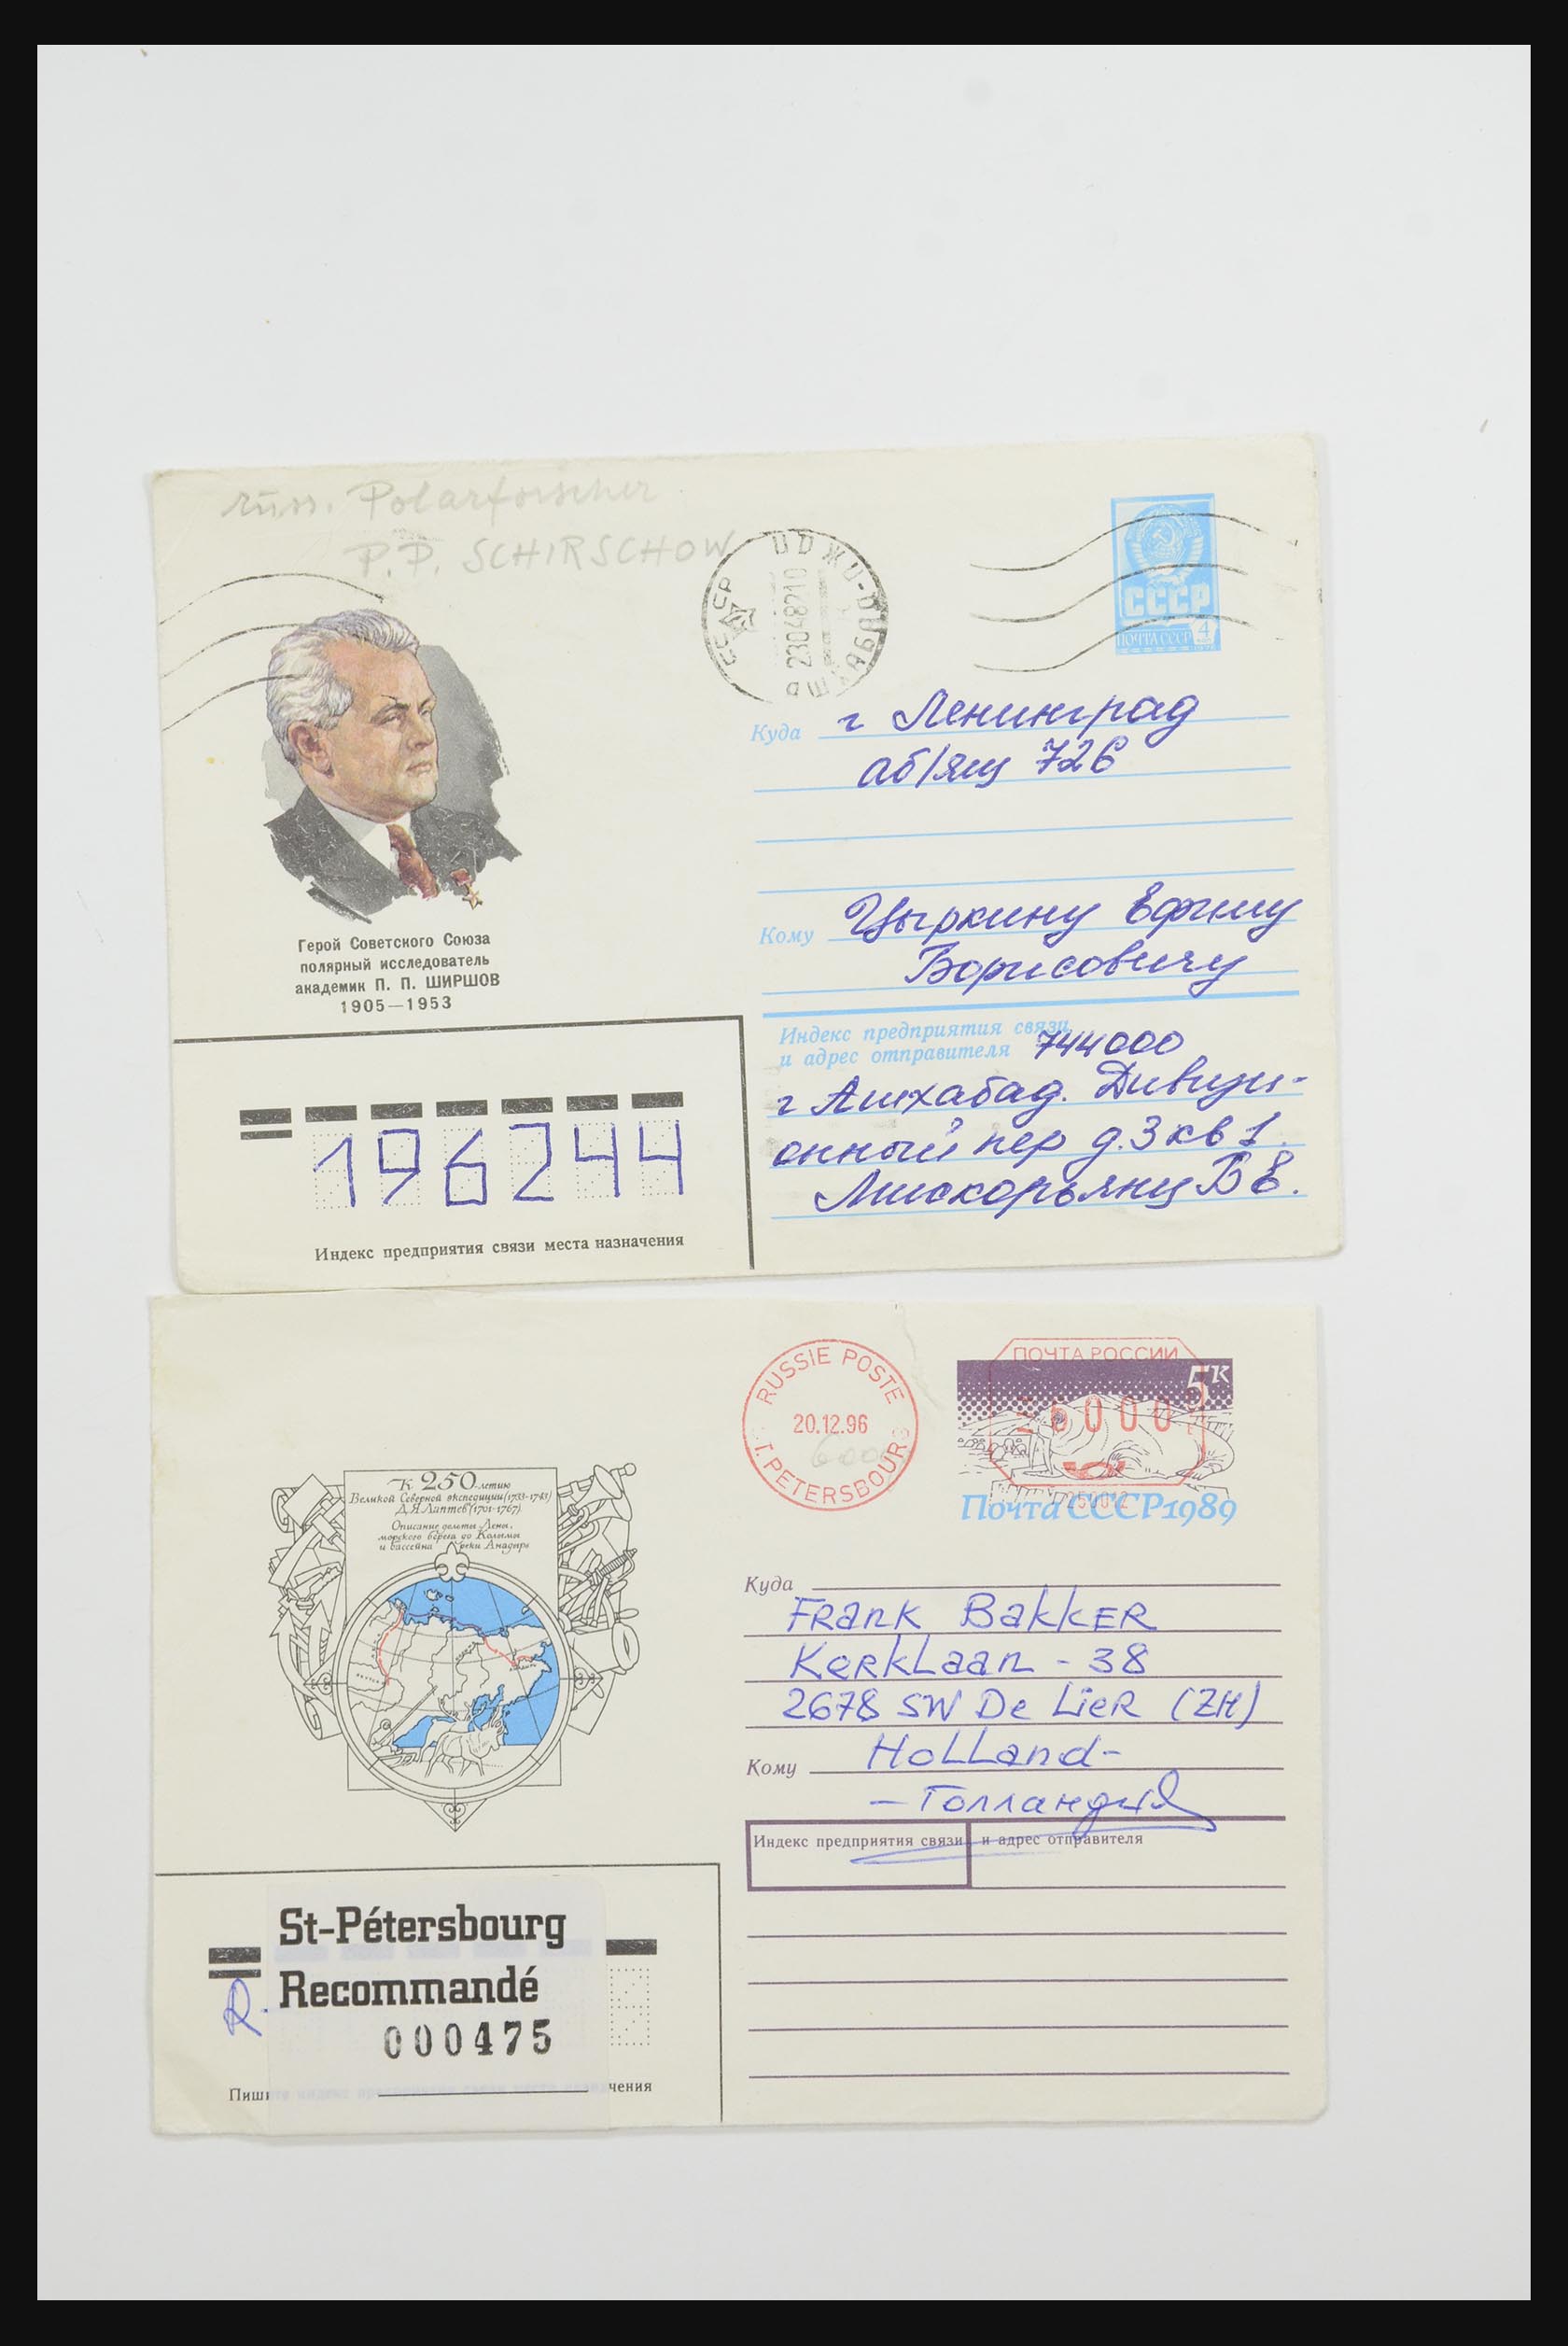 russ. Polarforscher
P. P. SCHIRSCHOW
СССР
23048210
СССР
ПОЧТА СССР 4
Герой Советского Союза
полярный исследователь
академик П. П. ШИРШОВ
1905—1953
Куда г Ленинград
аб/ящ 726
Кому Цыркину Ефиму
Борисовичу
Индекс предприятия связи
и адрес отправителя 744000
г Ашхабад. Дивизи-
онный пер д.3 кв 1.
Мискорьянц В Е.
196244
Индекс предприятия связи места назначения
RUSSIE POSTE
20.12.96
6000
ST. PETERSBOURG
ПОЧТА РОССИИ
5к
Почта СССР 1989
К 250-летию
Великой Северной экспедиции (1733-1743)
Д.Я.Лаптев (1701-1767)
Описание дельты Лены,
морского берега до Колымы
и бассейна реки Анадырь
Куда
Frank Bakker
Kerklaan - 38
2678 SW De Lier (ZH)
Кому Holland-
- Голландия
Индекс предприятия связи и адрес отправителя
St-Pétersbourg
R. Recommandé
000475
Пишите индекс предприятия связи места назначения